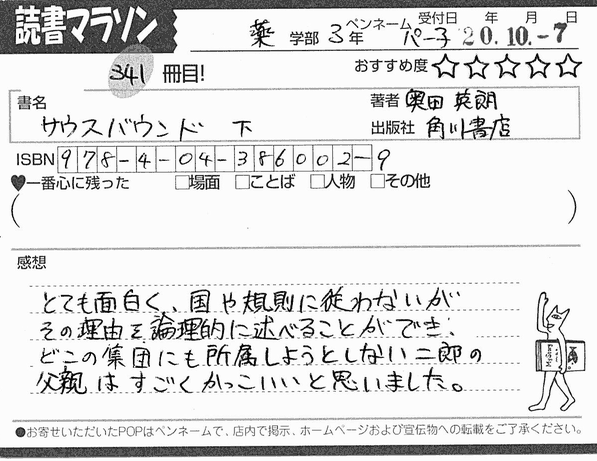 読書マラソン
薬 学部 3年 ペンネーム パー子 受付日 年 月 日
20.10.-7
341 冊目!
おすすめ度 ☆☆☆☆☆
書名 サウスバウンド 下
著者 奥田 英朗
出版社 角川書店
ISBN 978-4-04-386002-9
♥一番心に残った □場面 □ことば □人物 □その他
( )
感想
とても面白く、国や規則に従わないが
その理由を論理的に述べることができ、
どこの集団にも所属しようとしない二郎の
父親はすごくかっこいいと思いました。
●お寄せいただいたPOPはペンネームで、店内で掲示、ホームページおよび宣伝物への転載をご了承ください。